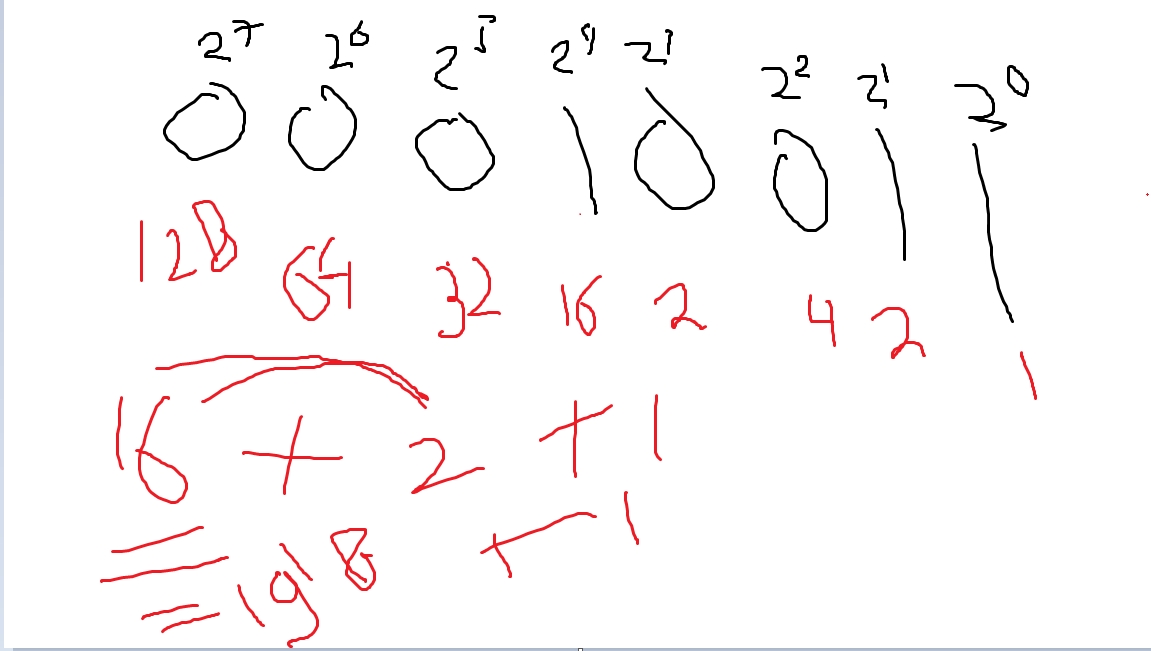 2⁷ 2⁶ 2⁵ 2⁴ 2³ 2² 2¹ 2⁰
0 0 0 1 0 0 1 1
128 64 32 16 2 4 2 1
16 + 2 + 1
= 18 + 1
= 19